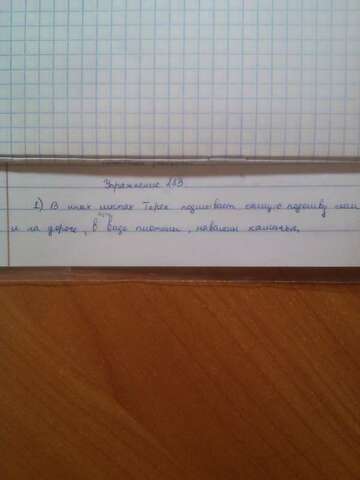 Упражнение 163.
1) В иных местах Терек подмывает самую подошву скал
и на дороге, в виде плотины, навалены каменья.